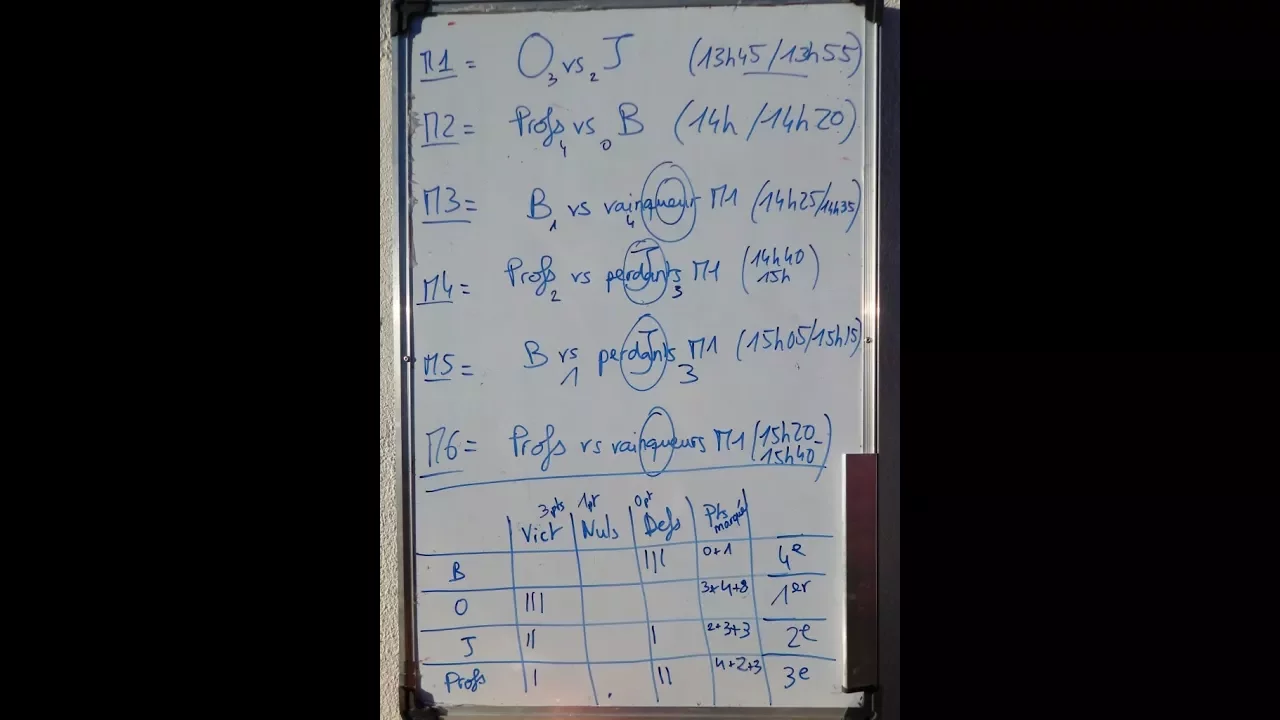 M1 = O vs J (13h45/13h55)
3 2
M2 = Profs vs B (14h/14h20)
4 0
M3 = B vs vainqueur M1 (14h25/14h35)
1 4
M4 = Profs vs perdants M1 (14h40
15h)
J
2 3
M5 = B vs perdants M1 (15h05/15h15)
J
1 3
M6 = Profs vs vainqueurs M1 (15h20-
15h40)
3pts 1pt 0pt
Vict Nuls Defs Pts marqué
B III 0+1 4e
O III 3+4+8 1er
J II I 2+3+3 2e
Profs I II 4+2+3 3e